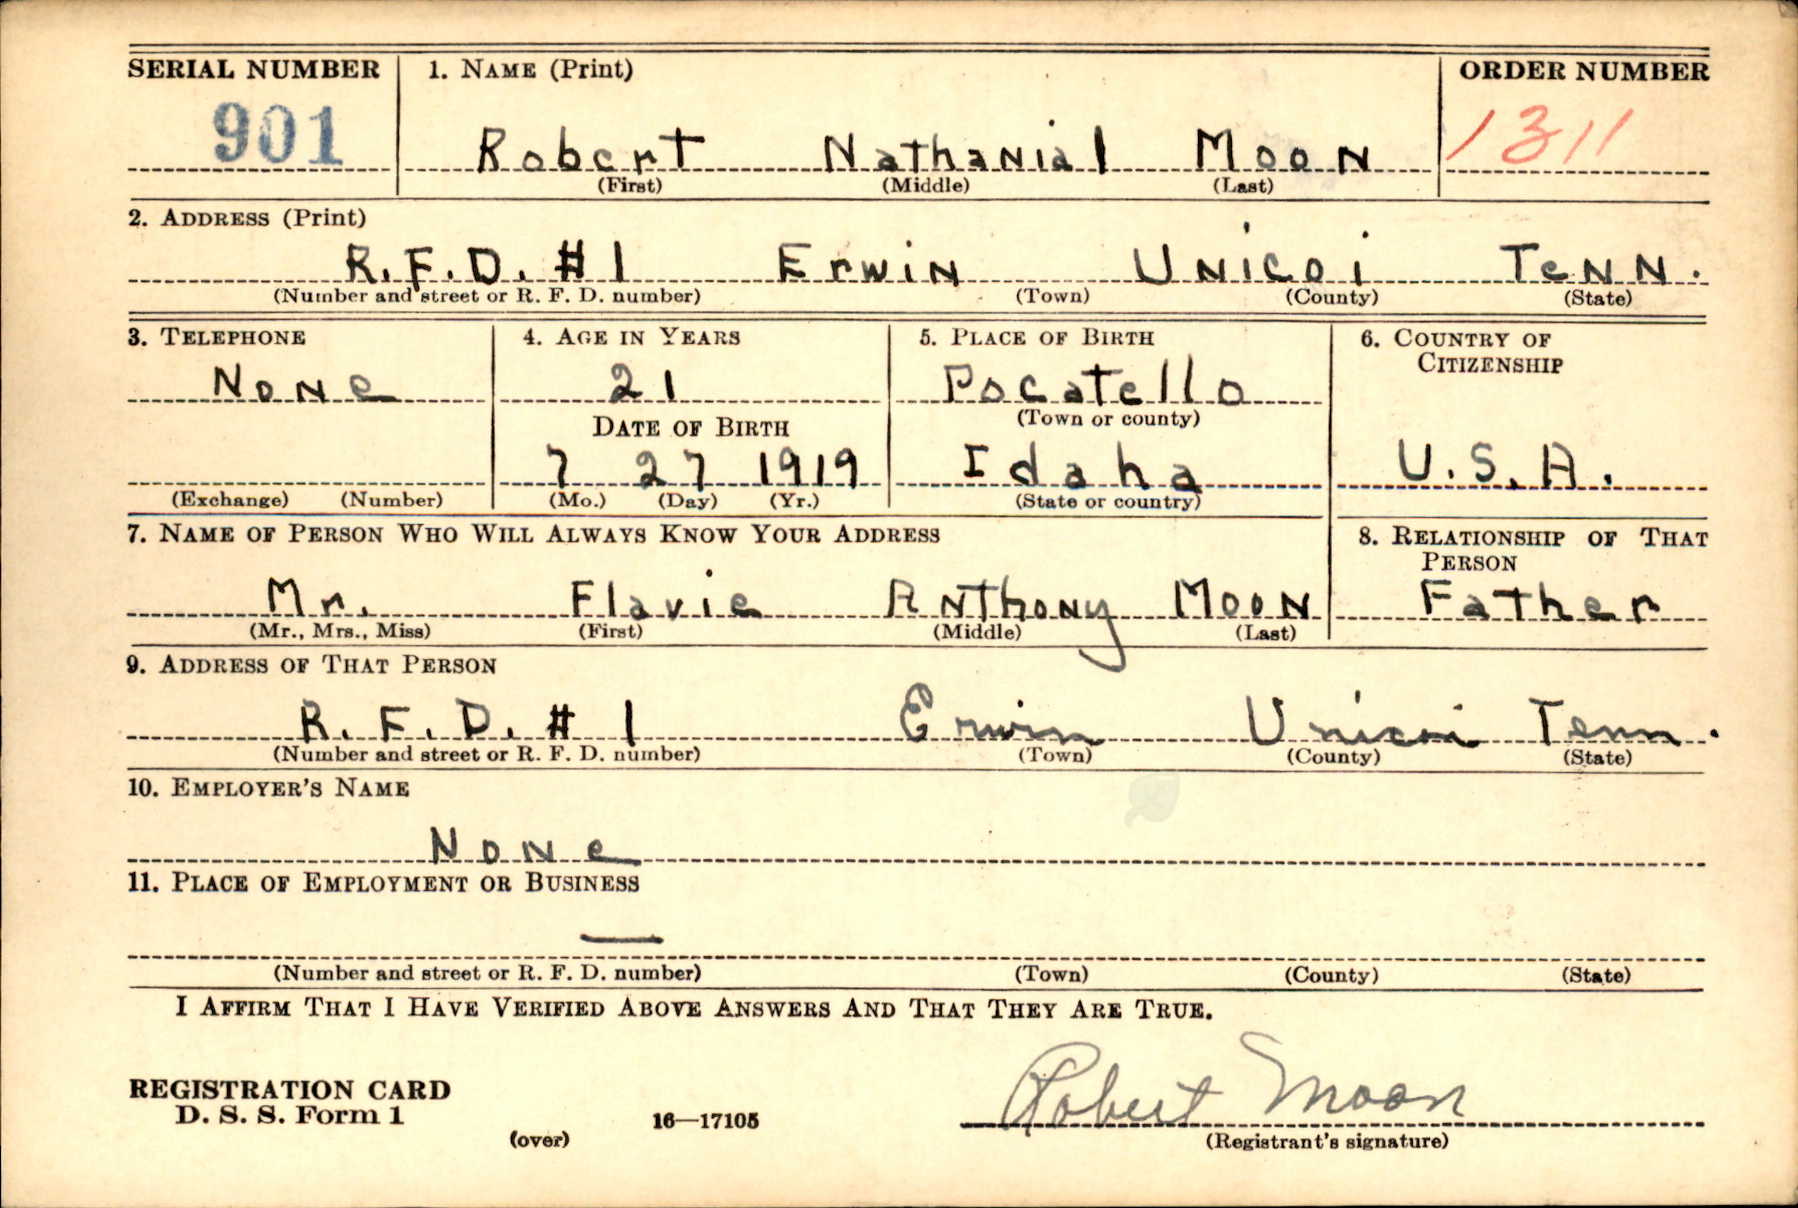 SERIAL NUMBER 1. NAME (Print) ORDER NUMBER
901 Robert Nathanial Moon 1311
(First) (Middle) (Last)
2. ADDRESS (Print)
R.F.D. #1 Erwin Unicoi Tenn.
(Number and street or R. F. D. number) (Town) (County) (State)
3. TELEPHONE 4. AGE IN YEARS 5. PLACE OF BIRTH 6. COUNTRY OF CITIZENSHIP
None 21 Pocatello
(Town or county)
DATE OF BIRTH
7 27 1919 Idaha U.S.A.
(Exchange) (Number) (Mo.) (Day) (Yr.) (State or country)
7. NAME OF PERSON WHO WILL ALWAYS KNOW YOUR ADDRESS 8. RELATIONSHIP OF THAT PERSON
Mr. Flavie Anthony Moon Father
(Mr., Mrs., Miss) (First) (Middle) (Last)
9. ADDRESS OF THAT PERSON
R.F.D. #1 Erwin Unicoi Tenn.
(Number and street or R. F. D. number) (Town) (County) (State)
10. EMPLOYER'S NAME
None
11. PLACE OF EMPLOYMENT OR BUSINESS
—
(Number and street or R. F. D. number) (Town) (County) (State)
I AFFIRM THAT I HAVE VERIFIED ABOVE ANSWERS AND THAT THEY ARE TRUE.
REGISTRATION CARD
D. S. S. Form 1 16—17105 Robert Moon
(over) (Registrant's signature)